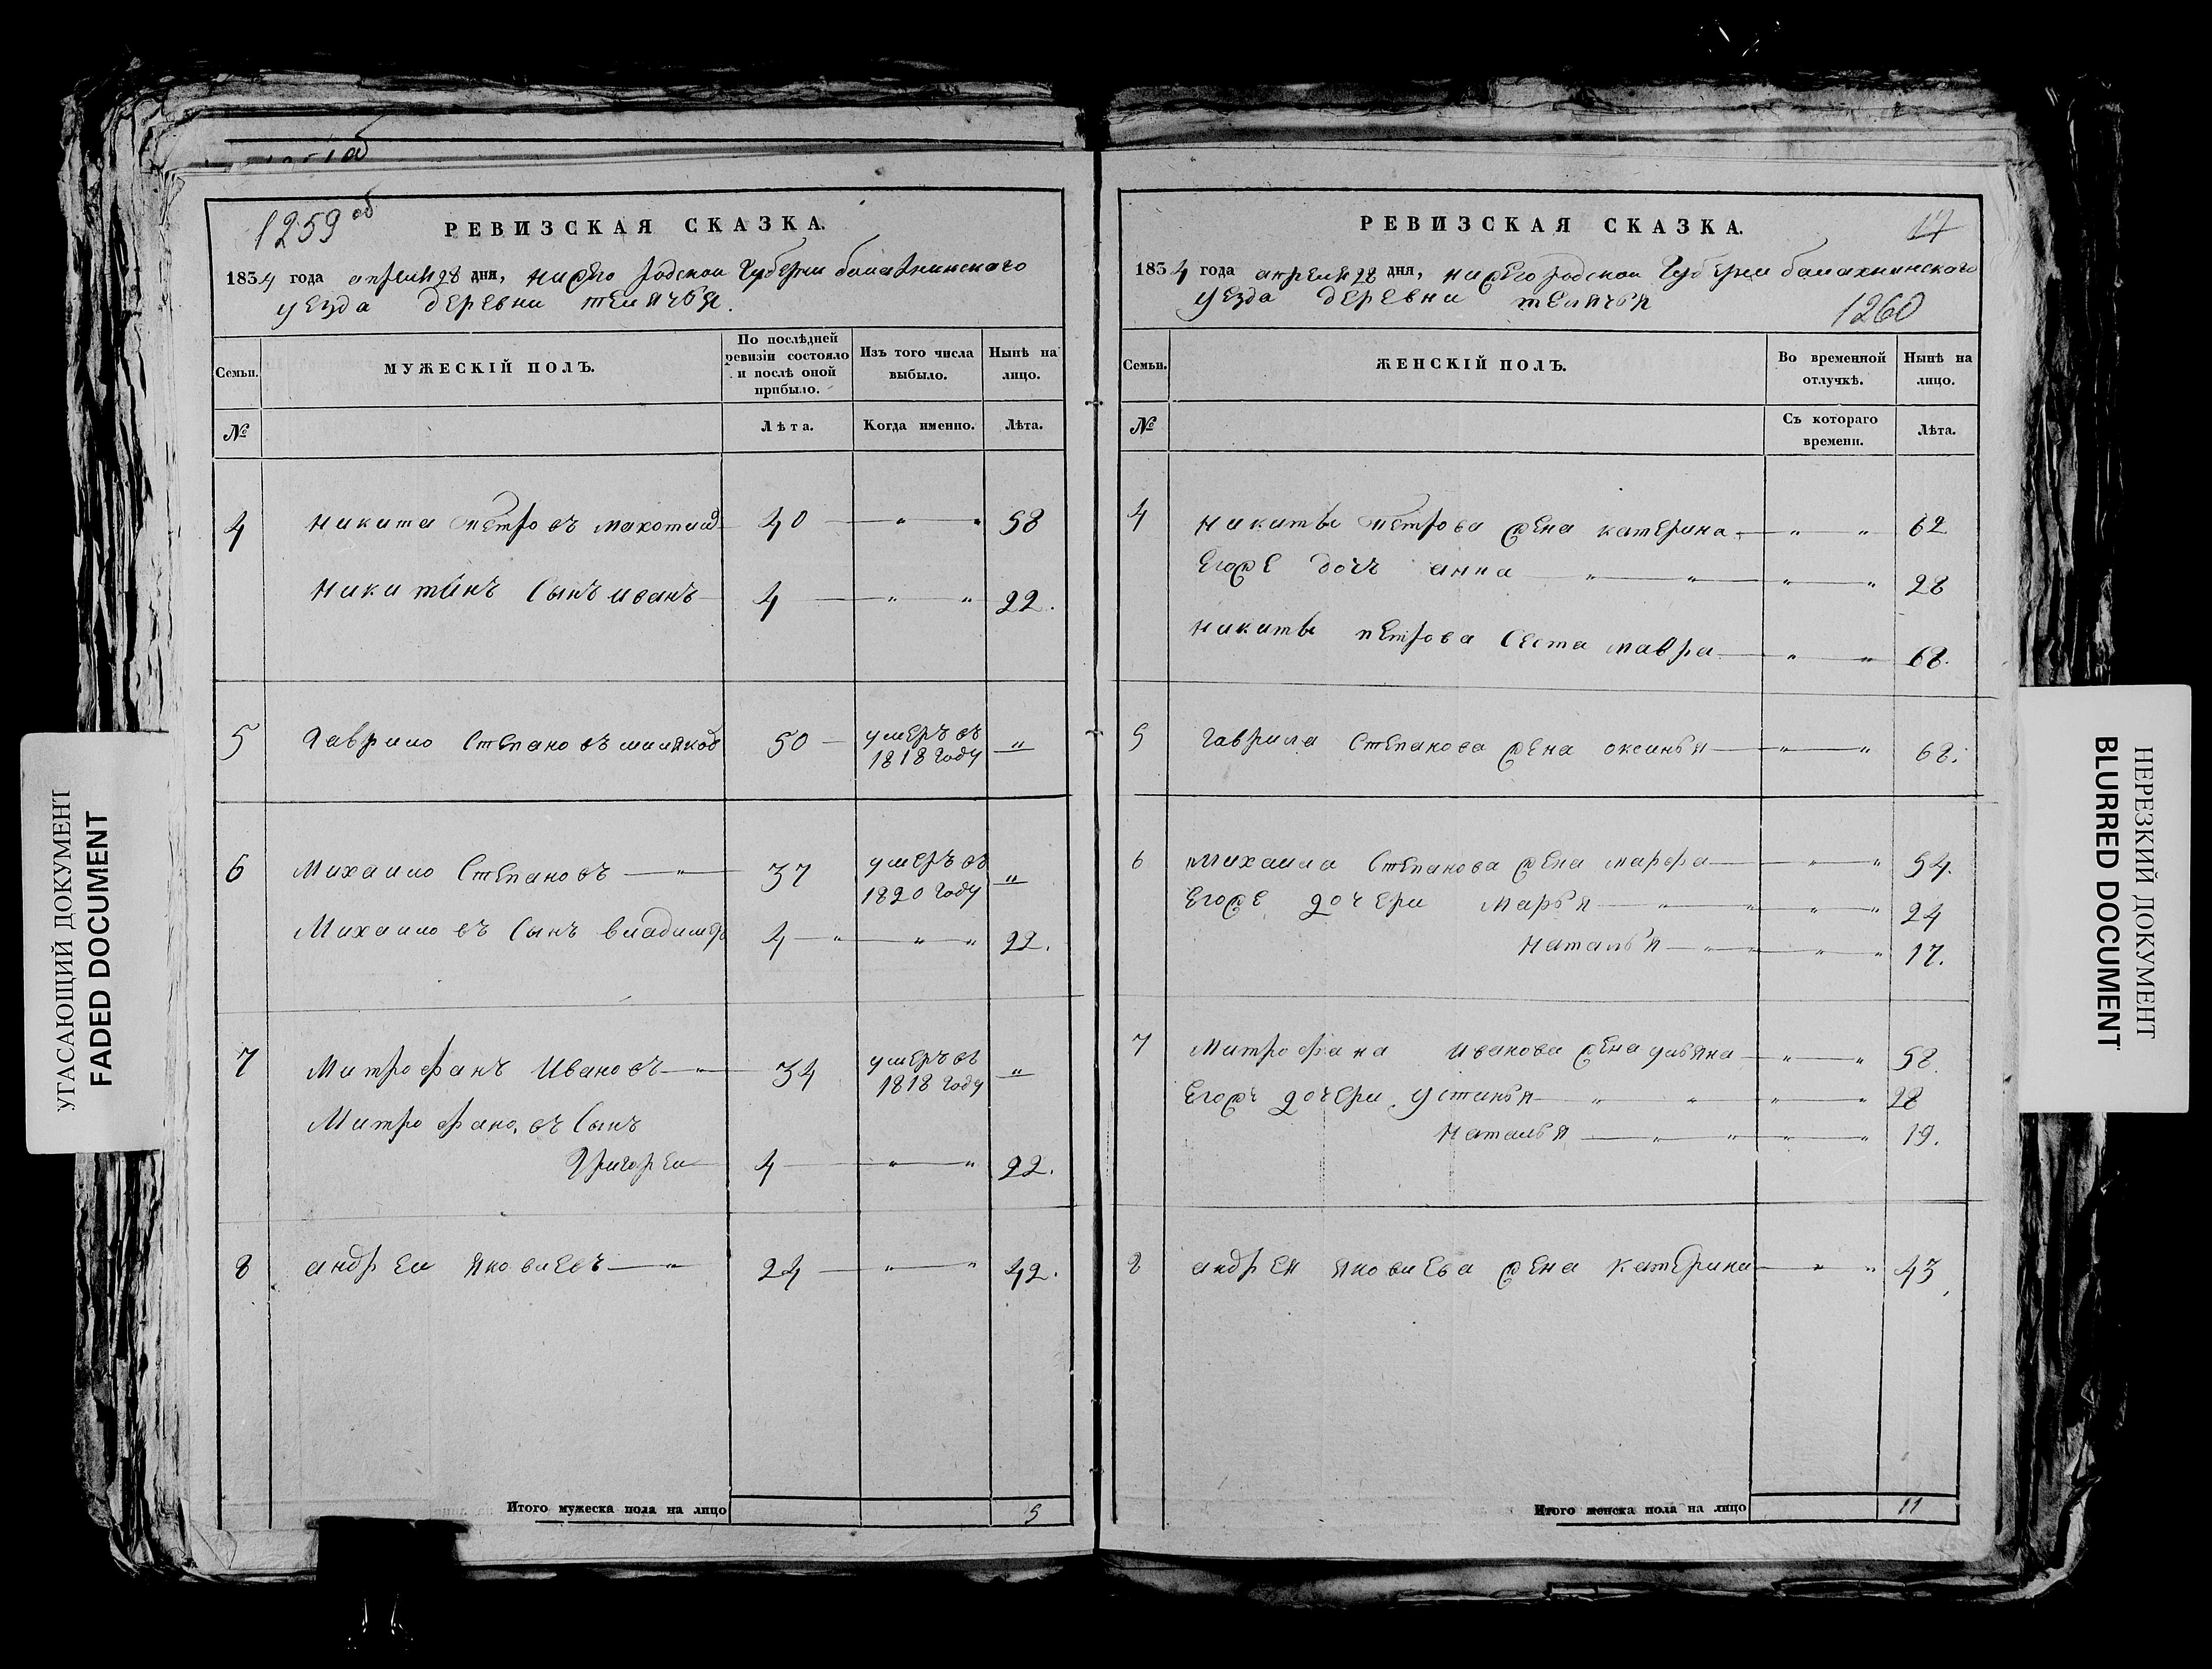 УГАСАЮЩИЙ ДОКУМЕНТ
FADED DOCUMENT
1259 об
РЕВИЗСКАЯ СКАЗКА.
1834 года апреля 28 дня, нижегородскои губерни балахнинскаго
уезда деревни телячья.
Семьи.
МУЖЕСКІЙ ПОЛЪ.
По послѣдней ревизіи состояло и послѣ оной прибыло.
Изъ того числа выбыло.
Нынѣ на лицо.
№
Лѣта.
Когда именно.
Лѣта.
4 никита петровъ 40 — „ „ 58
никитинъ сынъ иванъ 4 — „ „ 22.
5 гаврило степановъ 50 — умеръ въ 1818 году „
6 Михаило Степановъ — „ — 37 умеръ въ 1820 году „
Михаиловъ сынъ владимиръ 4 — „ — „ „ 22.
7 Митрофанъ Ивановъ — „ — 34 умеръ въ 1818 году „
Митрофановъ сынъ
Григореи 4 — „ „ 22.
8 андреи яковлевъ — „ 24 — „ „ 42.
Итого мужеска пола на лицо 5
РЕВИЗСКАЯ СКАЗКА.
17
1834 года апреля 28 дня, нижегородскои губерни балахнинского
уезда деревни телячья
1260
Семьи.
ЖЕНСКІЙ ПОЛЪ.
Во временной отлучкѣ.
Нынѣ на лицо.
№
Съ котораго времени.
Лѣта.
4 никиты петрова жена катерина — „ „ 62
егоже дочь анна — „ „ „ „ 28
никиты петрова сеста мавра — „ „ 68.
5 гаврила степанова жена оксинья — „ „ 68.
6 михаила степанова жена марфа — „ „ 54.
егоже дочери марья — „ „ „ „ 24
наталья — „ „ „ „ 17.
7 митрофана иванова жена ульяна — „ „ 58.
егожъ дочери устинья — „ „ „ „ 28
наталья — „ „ „ „ 19.
8 андрея яковлева жена катерина — „ „ 43
Итого женска пола на лицо 11
НЕРЕЗКИЙ ДОКУМЕНТ
BLURRED DOCUMENT